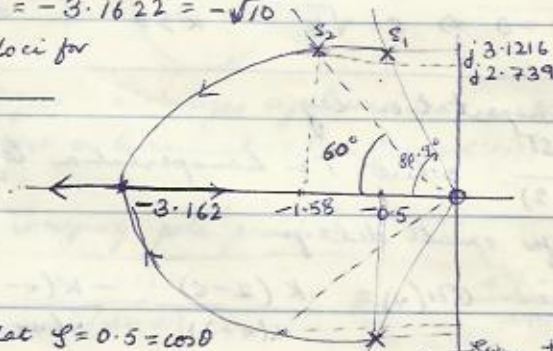 = -3.1622 = -√10
loci for
s₂ s₁
j3.1216
j2.739
60°
-3.162 -1.58 -0.5
at ζ = 0.5 = cosθ